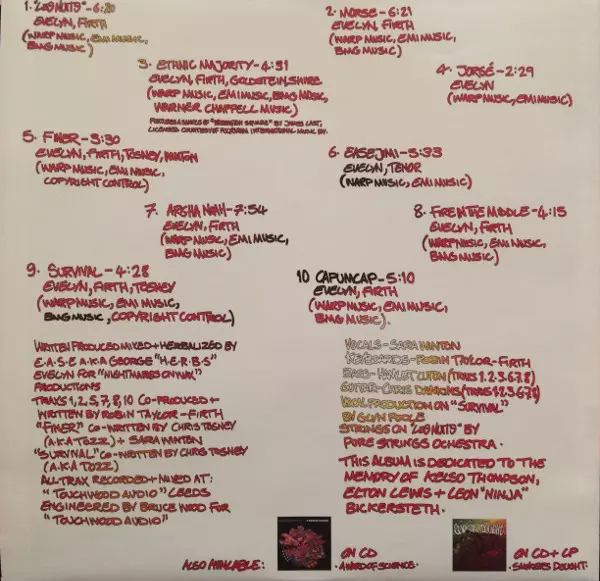 1. "LES NUITS" - 6:20
EVELYN, FIRTH
(WARP MUSIC, EMI MUSIC,
BMG MUSIC)
2. MORSE - 6:21
EVELYN, FIRTH
(WARP MUSIC, EMI MUSIC,
BMG MUSIC)
3. ETHNIC MAJORITY - 4:31
EVELYN, FIRTH, GOLDSTEIN, SHIRE
(WARP MUSIC, EMI MUSIC, BMG MUSIC,
WARNER CHAPPELL MUSIC)
FEATURES A SAMPLE OF BY JAMES LAST,
LICENSED COURTESY OF POLYGRAM INTERNATIONAL MUSIC BV.
4. JORGÉ - 2:29
EVELYN
(WARP MUSIC, EMI MUSIC)
5. FINER - 5:30
EVELYN, FIRTH, TOSHEY, WINTON
(WARP MUSIC, EMI MUSIC,
COPYRIGHT CONTROL)
6. EASEJMI - 5:33
EVELYN, TENOR
(WARP MUSIC, EMI MUSIC)
7. ARGHA NOAH - 7:54
EVELYN, FIRTH
(WARP MUSIC, EMI MUSIC,
BMG MUSIC)
8. FIRE IN THE MIDDLE - 4:15
EVELYN, FIRTH
(WARP MUSIC, EMI MUSIC,
BMG MUSIC)
9. SURVIVAL - 4:28
EVELYN, FIRTH, TOSHEY
(WARP MUSIC, EMI MUSIC,
BMG MUSIC, COPYRIGHT CONTROL)
10 CAPUMCAP - 5:10
EVELYN, FIRTH
(WARP MUSIC, EMI MUSIC,
BMG MUSIC).
WRITTEN PRODUCED MIXED + HERBALIZED BY
E.A.S.E A.K.A GEORGE "H.E.R.B.S"
EVELYN FOR "NIGHTMARES ON WAX"
PRODUCTIONS
TRAX 1, 2, 5, 7, 8, 10 CO-PRODUCED +
WRITTEN BY ROBIN TAYLOR - FIRTH
"FINER" CO-WRITTEN BY CHRIS TOSHEY
(A.K.A TOZZ) + SARA WINTON
"SURVIVAL" CO-WRITTEN BY CHRIS TOSHEY
(A.K.A TOZZ)
ALL TRAX RECORDED + MIXED AT:
"TOUCHWOOD AUDIO" LEEDS
ENGINEERED BY BRUCE WOOD FOR
"TOUCHWOOD AUDIO"
VOCALS - SARA WINTON
KEYBOARDS - ROBIN TAYLOR-FIRTH
BASS - HAMLET LUTON (TRAX 1.2.3.6.7.8)
GUITER - CHRIS DAWKINS (TRAX 1.2.3.6.7.8)
VOCAL PRODUCTION ON "SURVIVAL"
BY GLYN POOLE
STRINGS ON "LES NUITS" BY
PURE STRINGS OCHESTRA.
THIS ALBUM IS DEDICATED TO THE
MEMORY OF KELSO THOMPSON,
ELTON LEWIS + LEON "NINJA"
BICKERSTETH.
ALSO AVAILABLE:
ON CD
A WORD OF SCIENCE.
ON CD + LP
SMOKERS DELIGHT.